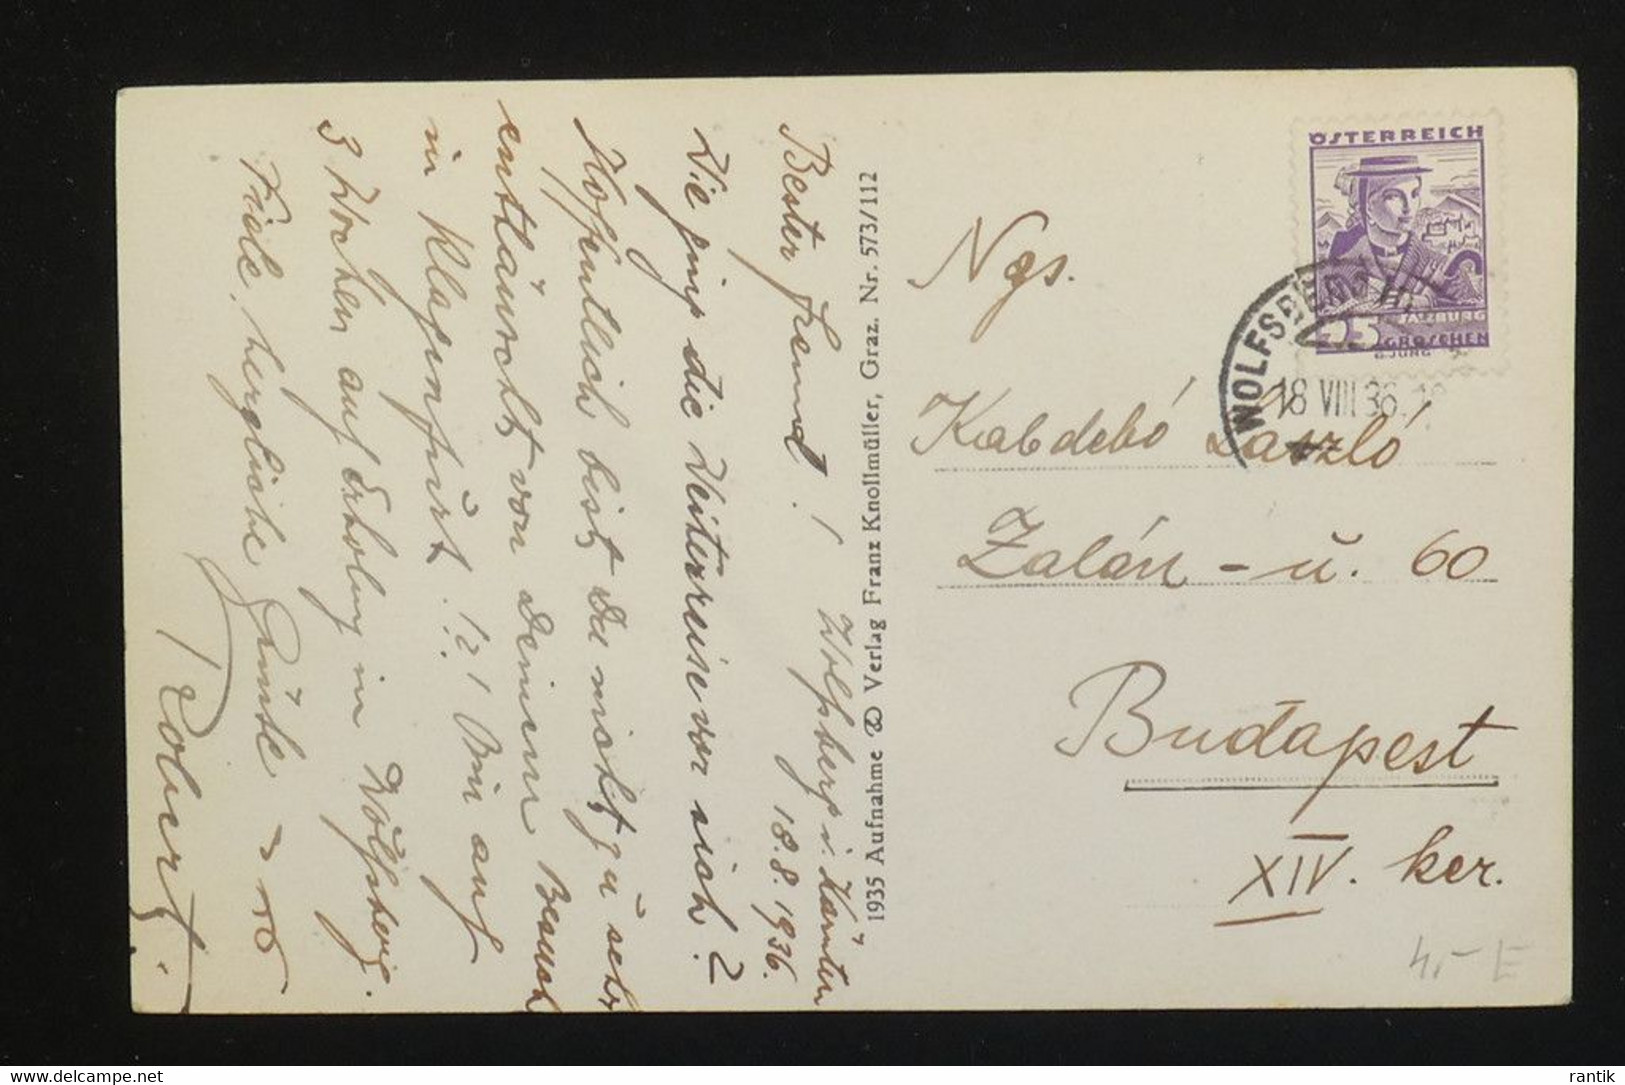 Wolfsberg i. Kärnten
18.8.1936.
Bester Freund!
Wie ging die Weiterreise vor sich?
Hoffentlich bist Du nicht zu sehr
enttäuscht von Deinem Besuch
in Klagenfurt!?! Bin auf
3 Wochen auf Erholung in Wolfsberg.
Viele herzliche Grüße
Robert.
1935 Aufnahme Verlag Franz Knollmüller, Graz. Nr. 573/112
ÖSTERREICH
SALZBURG
25 GROSCHEN
WOLFSBERG
18 VIII 36
Ngs.
Kabdebó László
Zalán-u. 60
Budapest
XIV. ker.
4,- E
Image © Delcampe International SRL
rantik